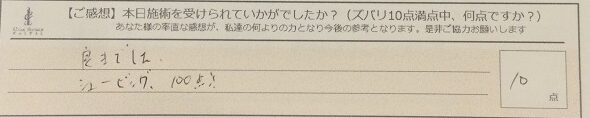 【ご感想】本日施術を受けられていかがでしたか？（ズバリ10点満点中、何点ですか？）
あなた様の率直な感想が、私達の何よりの力となり今後の参考となります。是非ご協力お願いします
良きでした。
シェービング、100点！
10
点